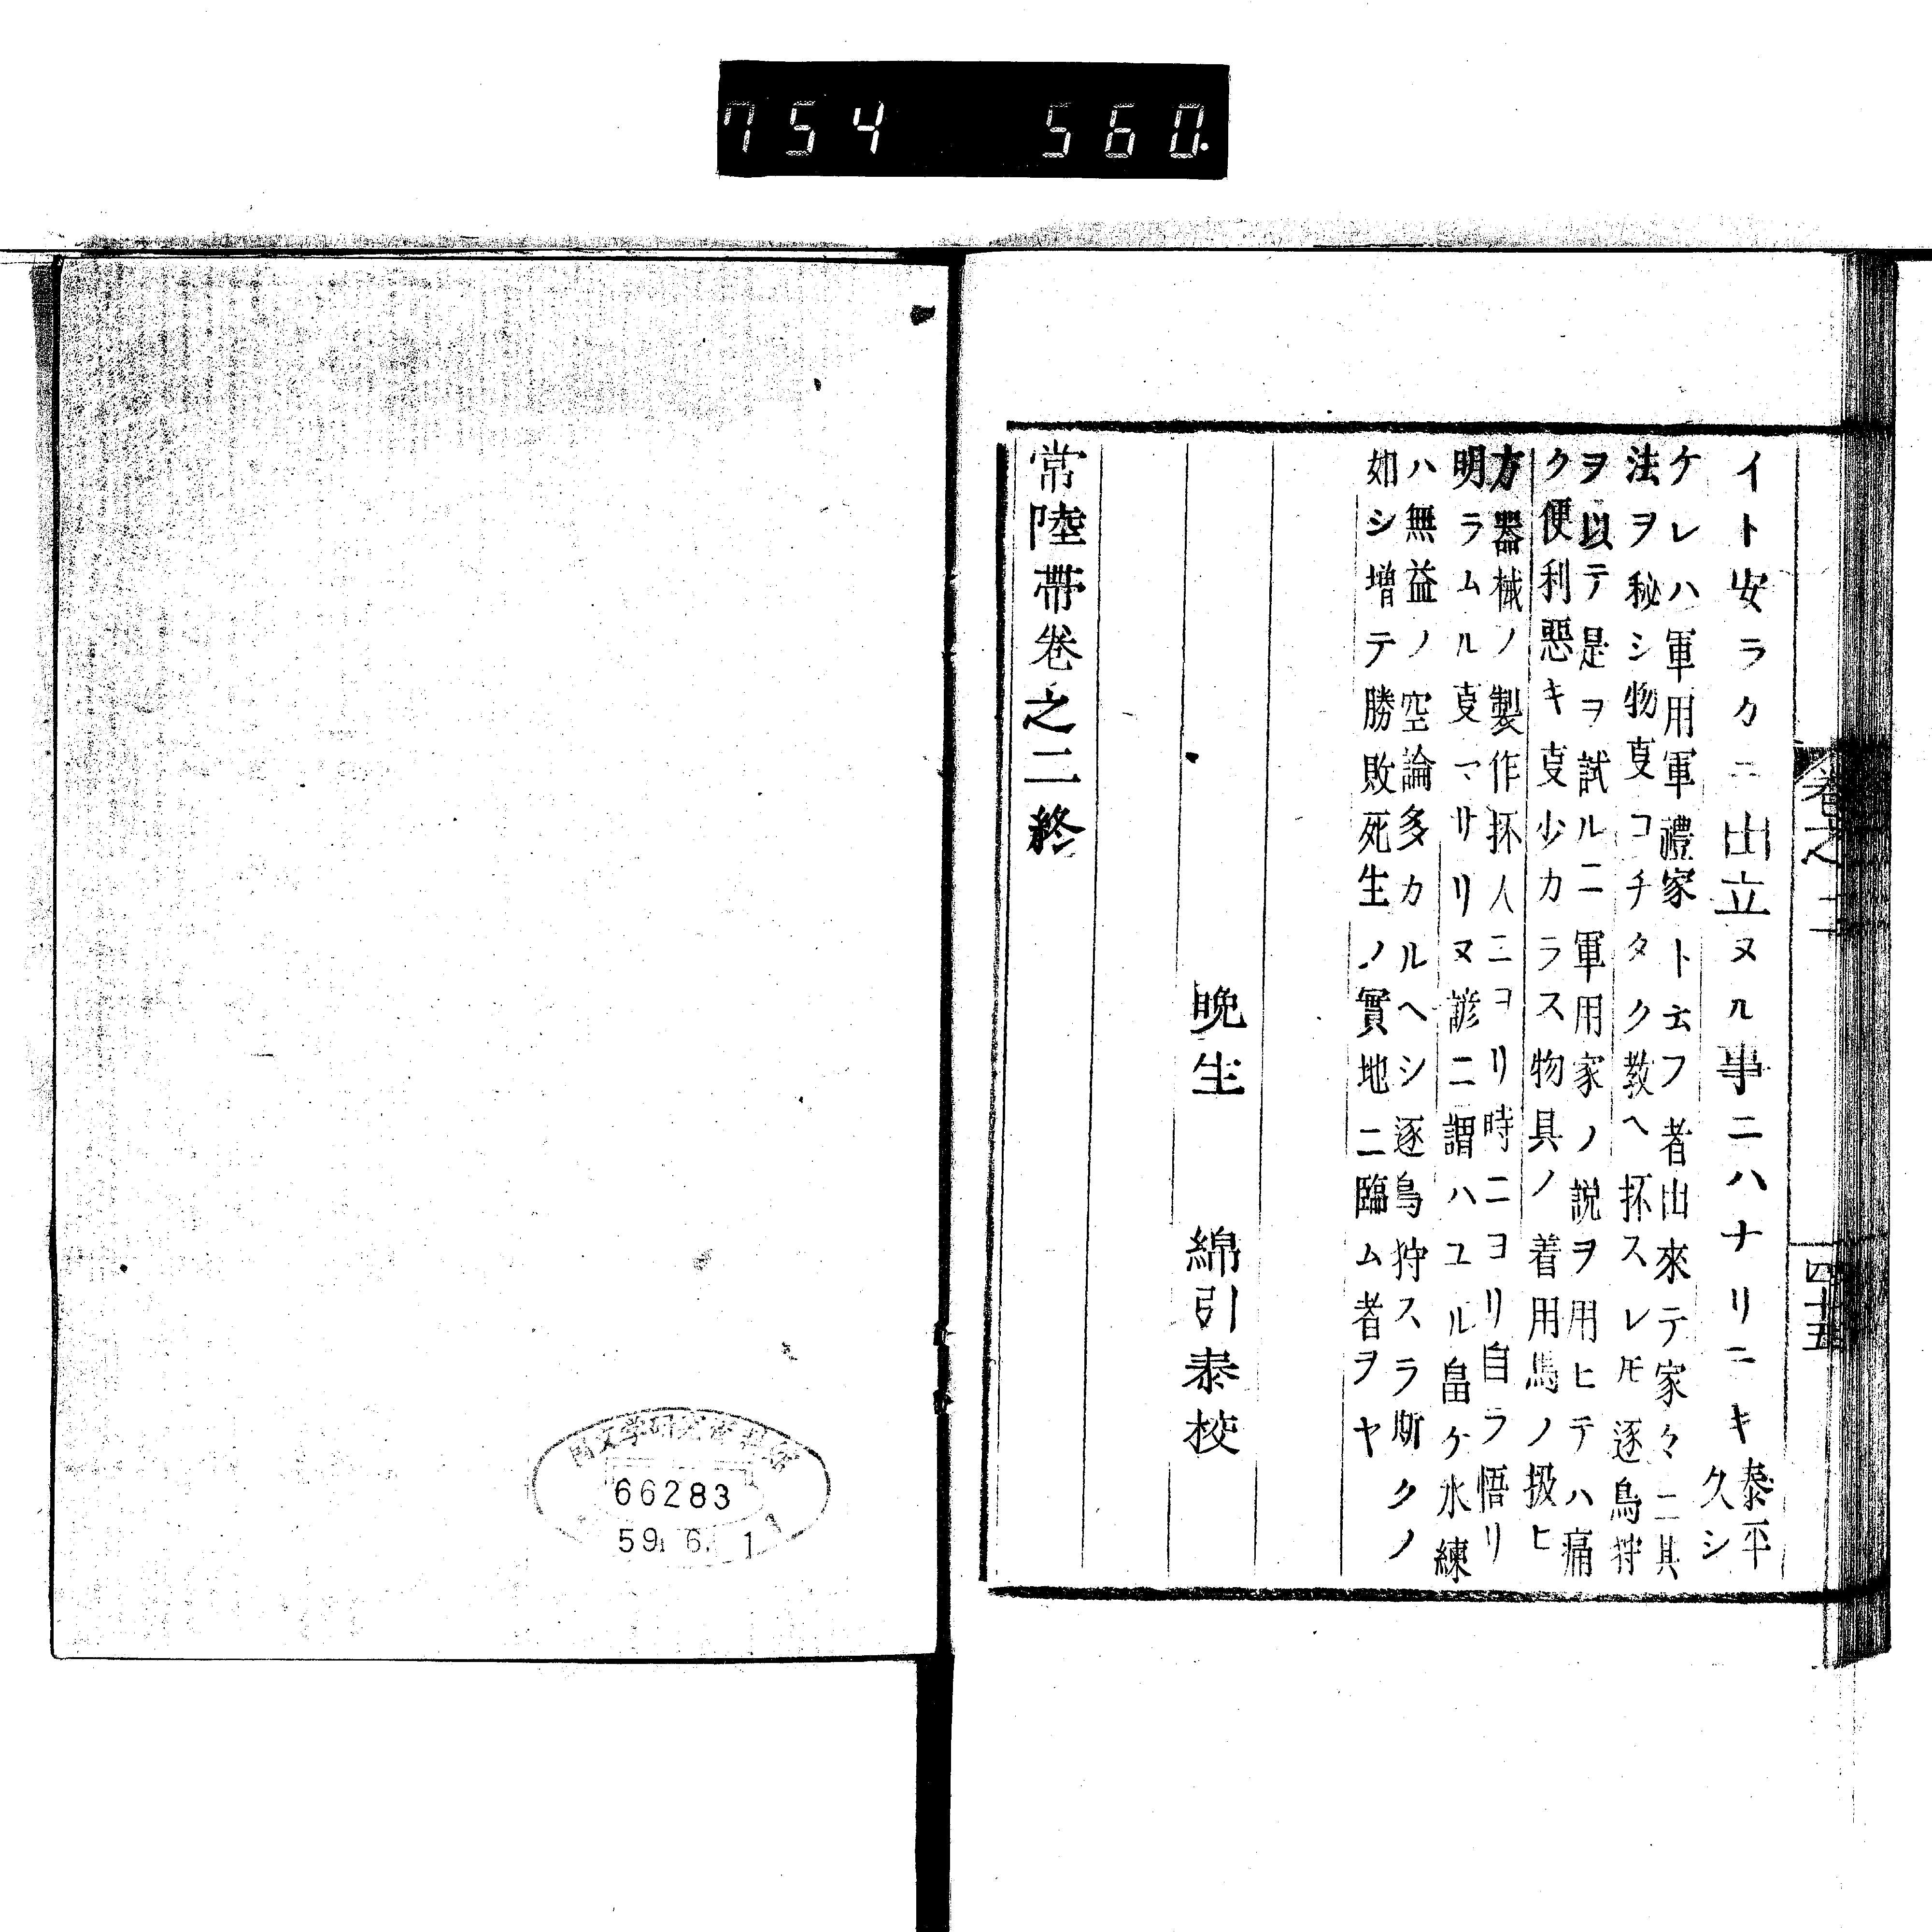 754 560.
卷之二
四十五
イト安ラカニ出立ヌル事ニハナリニキ
泰平
久シ
ケレハ軍用軍禮家ト云フ者出來テ家々ニ其
法ヲ秘シ物夏コチタク敎ヘ抔スレ𪜈逐鳥狩
ヲ以テ是ヲ試ルニ軍用家ノ説ヲ用ヒテハ痛
ク便利惡キ夏少カラス物具ノ着用馬ノ扱ヒ
方器械ノ製作抔人ニヨリ時ニヨリ自ラ悟リ
明ラムル夏マサリリヌ諺ニ謂ハユル畠ケ水練
ハ無益ノ空論多カルヘシ逐鳥狩スラ斯クノ
如シ増テ勝敗死生ノ實地ニ臨ム者ヲヤ
晩生 綿引泰校
常陸帶卷之二終
国文学研究資料館
66283
59. 6. 1